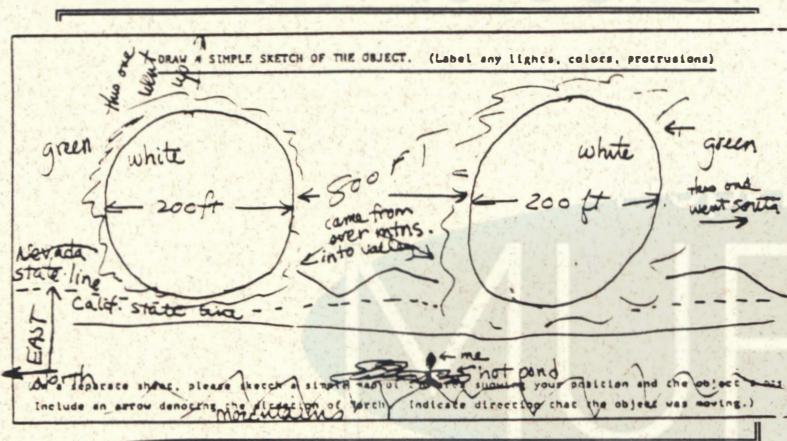 DRAW A SIMPLE SKETCH OF THE OBJECT. (Label any lights, colors, protrusions)
this one
went
up
green
white
200ft
800 FT
came from
over mtns.
into valley
white
200 ft
green
this one
went south
Nevada
state line
Calif. state line
EAST
North
me
hot pond
On a separate sheet, please sketch a simple map of showing your position and the object
Include an arrow denoting the direction of North. Indicate direction that the object was moving.)
mountains
MUF